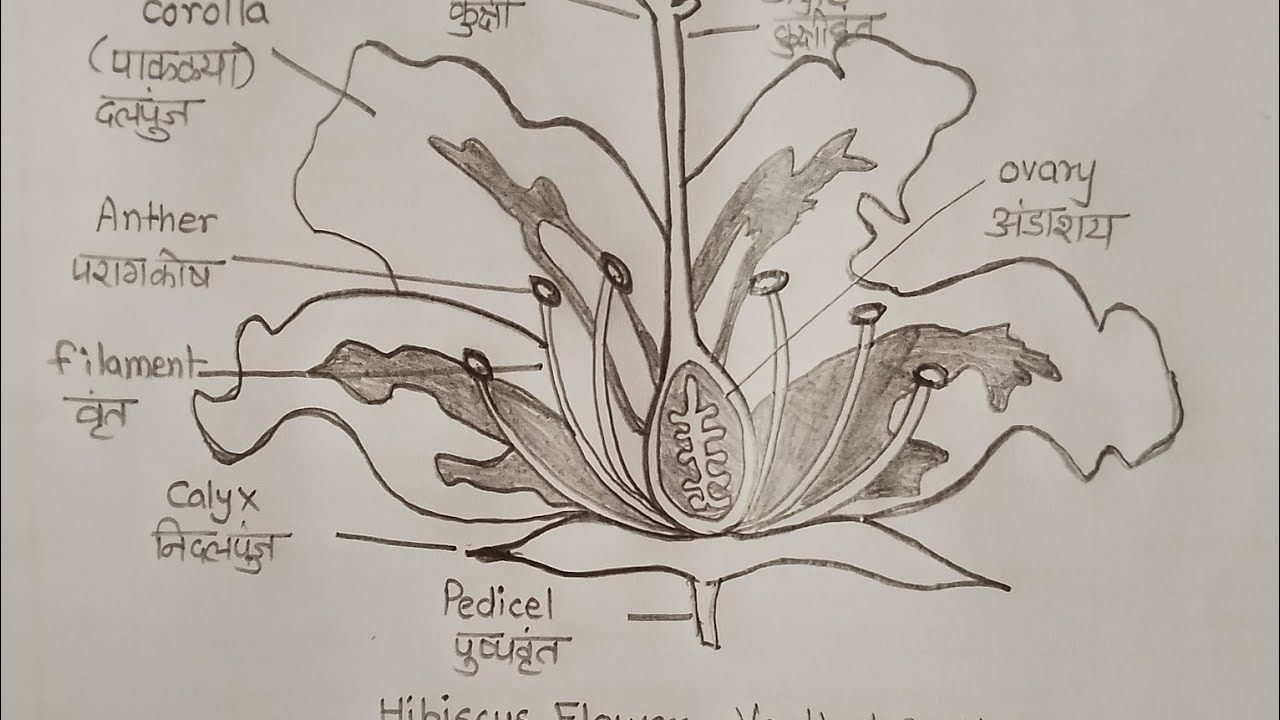 Corolla
(पाकळ्या)
दलपुंज
कुक्षी
Anther
परागकोष
filament
वृंत
Calyx
निदलपुंज
Pedicel
पुष्पवृंत
ovary
अंडाशय
Hibiscus Flower